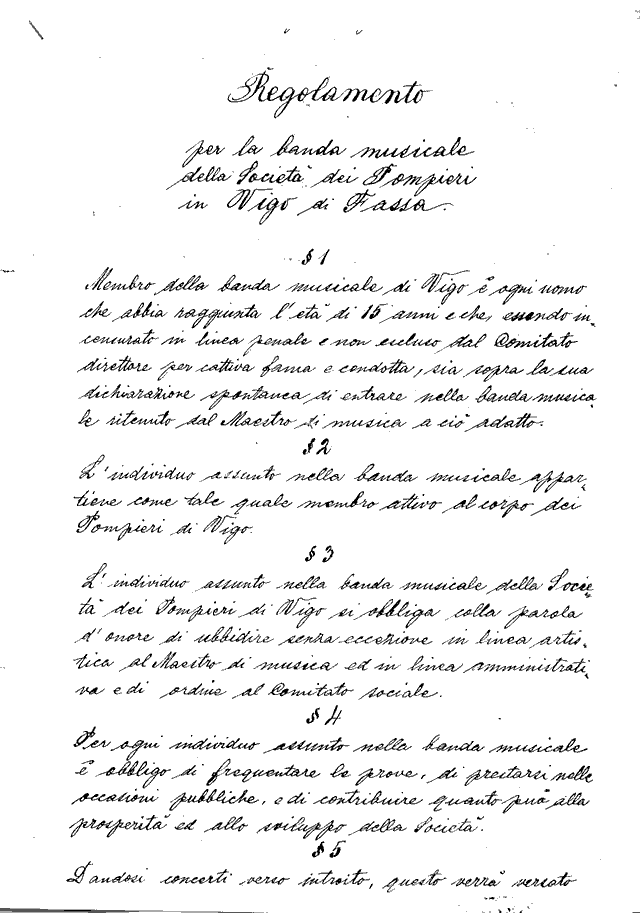 Regolamento
per la banda musicale
della Società dei Pompieri
in Vigo di Fassa.
§ 1
Membro della banda musicale di Vigo è ogni uomo
che abbia raggiunta l'età di 15 anni e che, essendo in-
censurato in linea penale e non escluso dal Comitato
direttore per cattiva fama e condotta, sia sopra la sua
dichiarazione spontanea di entrare nella banda musica-
le ritenuto dal Maestro di musica a ciò adatto.
§ 2
L'individuo assunto nella banda musicale appar-
tiene come tale quale membro attivo al corpo dei
Pompieri di Vigo.
§ 3
L'individuo assunto nella banda musicale della Socie-
tà dei Pompieri di Vigo si obbliga colla parola
d'onore di ubbidire senza eccezione in linea artis-
tica al Maestro di musica ed in linea amministrati-
va e di ordine al Comitato sociale.
§ 4
Per ogni individuo assunto nella banda musicale
è obbligo di frequentare le prove, di prestarsi nelle
occasioni pubbliche, e di contribuire quanto può alla
prosperità ed allo sviluppo della Società.
§ 5
Dandosi concerti verso introito, questo verrà versato